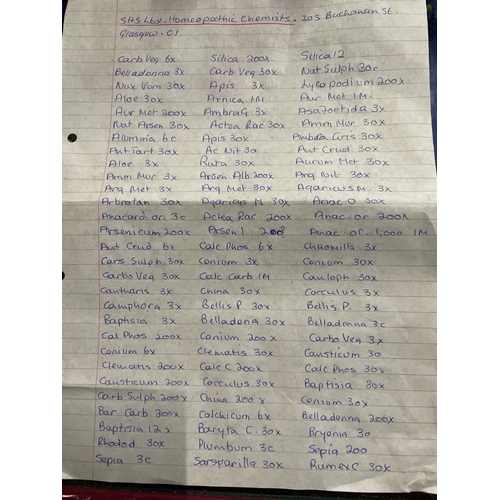 SHS Ltd. Homeopathic Chemists. 203 Buchanan St.
Glasgow. C1.
Carb Veg 6x Silica 200x Silica 12
Belladonna 3x Carb Veg 30x Nat Sulph 30c
Nux Vom 30x Apis 3x Lycopodium 200x
Aloe 30x Arnica 1M Aur Met 1M
Aur Met 200x Ambra G 3x Asafoetida 3x
Nat Arsen 30x Actea Rac 30x Amm Mur 30x
Alumina 6c Apis 30x Ambra Gris 30x
Ant Tart 30x Ac Nit 30 Ant Crud 30x
Aloe 3x Ruta 30x Aurum Met 30x
Amm Mur 3x Arsen Alb 200x Arg Nit 30x
Arg Met 3x Arg Met 30x Agaricus M. 3x
Arbrotan 30x Agaricus M 30x Anac O 30x
Anacard.or. 3c Actea Rac 200x Anac.or 200x
Arsenicum 200x Arsen 1 200 Anac.or. 1,000 1M
Ant Crud 6x Calc Phos 6x Chamilla 3x
Cars Sulph 30x Conium 3x Conium 30x
Carbo Veg 30x Calc Carb 1M Cauloph 30x
Cantharis 3x China 30x Cocculus 3x
Camphora 3x Bellis P. 30x Bellis P. 3x
Baptisia 3x Belladona 30x Belladonna 3c
Cal Phos 200x Conium 200x Carbo Veg 3x
Conium 6x Clematis 30x Causticum 30
Clematis 200x Calc C 200x Calc Phos 30x
Causticum 200x Cocculus 30x Baptisia 30x
Carb Sulph 200x China 200x Conium 30x
Bar Carb 200x Colchicum 6x Belladonna 200x
Baptisia 12x Baryta C. 30x Bryonia 30
Rhodod 30x Plumbum 3c Sepia 200
Sepia 3c Sarsparilla 30x Rumex C 30x